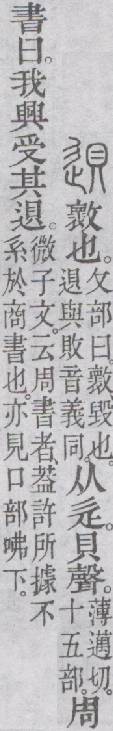 䢙𣀩也。攴部曰。𣀩、毀也。䢙與敗音義同。从辵。貝聲。薄邁切。十五部。周
書曰。我興受其䢙。微子文。云周書者、葢許所據不系於商書也。亦見口部咈下。